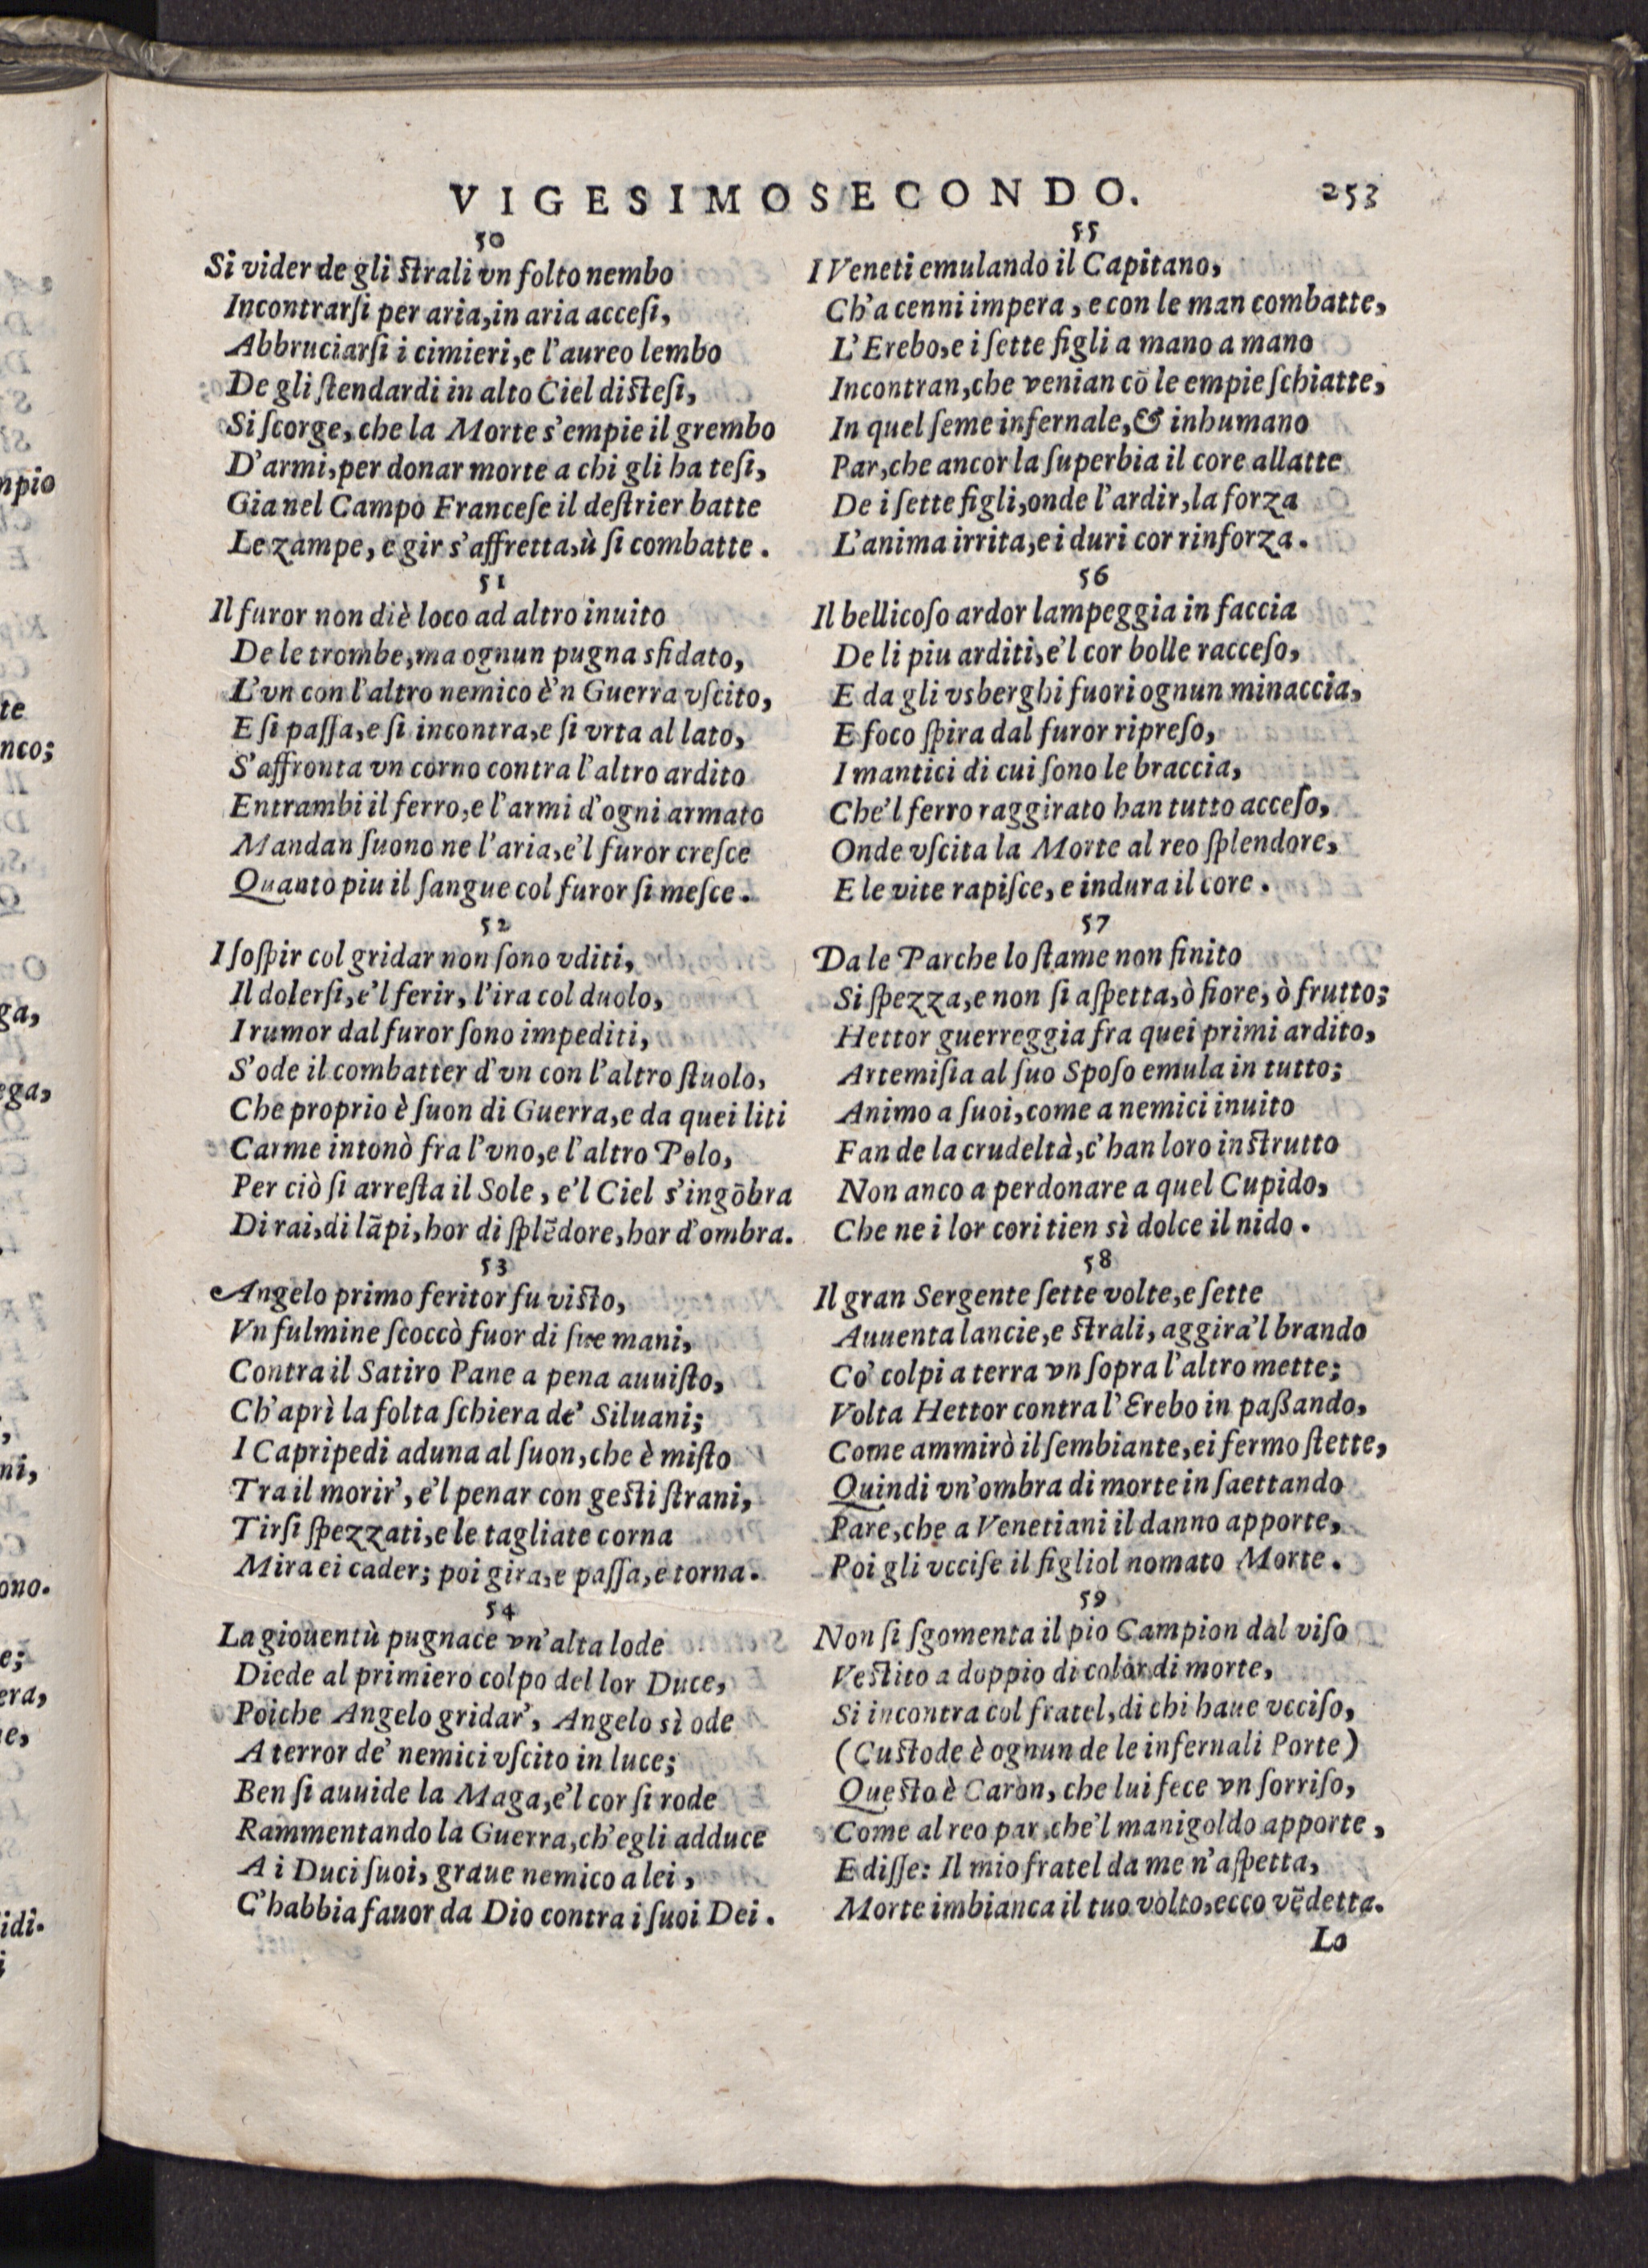 VIGESIMOSECONDO. 253
50
Si vider de gli ſtrali vn folto nembo
Incontrarſi per aria, in aria acceſi,
Abbruciarſi i cimieri, e l'aureo lembo
De gli ſtendardi in alto Ciel diſteſi,
Si ſcorge, che la Morte s'empie il grembo
D'armi, per donar morte a chi gli ha teſi,
Gia nel Campo Franceſe il deſtrier batte
Le zampe, e gir s'affretta, ù ſi combatte.
51
Il furor non diè loco ad altro inuito
De le trombe, ma ognun pugna sfidato,
L'vn con l'altro nemico è'n Guerra vſcito,
E ſi paſſa, e ſi incontra, e ſi vrta al lato,
S'affronta vn corno contra l'altro ardito
Entrambi il ferro, e l'armi d'ogni armato
Mandan ſuono ne l'aria, e'l furor creſce
Quanto piu il ſangue col furor ſi meſce.
52
I ſoſpir col gridar non ſono vditi,
Il dolerſi, e'l ferir, l'ira col duolo,
I rumor dal furor ſono impediti,
S'ode il combatter d'vn con l'altro ſtuolo,
Che proprio è ſuon di Guerra, e da quei liti
Carme intonò fra l'vno, e l'altro Polo,
Per ciò ſi arreſta il Sole, e'l Ciel s'ingōbra
Di rai, di lāpi, hor di ſplēdore, hor d'ombra.
53
Angelo primo feritor fu viſto,
Vn fulmine ſcoccò fuor di ſue mani,
Contra il Satiro Pane a pena auuiſto,
Ch'aprì la folta ſchiera de' Siluani;
I Capripedi aduna al ſuon, che è miſto
Tra il morir', e'l penar con geſti ſtrani,
Tirſi ſpezzati, e le tagliate corna
Mira ei cader; poi gira, e paſſa, e torna.
54
La giouentù pugnace vn'alta lode
Diede al primiero colpo del lor Duce,
Poiche Angelo gridar', Angelo sì ode
A terror de' nemici vſcito in luce;
Ben ſi auuide la Maga, e'l cor ſi rode
Rammentando la Guerra, ch'egli adduce
A i Duci ſuoi, graue nemico a lei,
C'habbia fauor da Dio contra i ſuoi Dei.
55
I Veneti emulando il Capitano,
Ch'a cenni impera, e con le man combatte,
L'Erebo, e i ſette figli a mano a mano
Incontran, che venian cō le empie ſchiatte,
In quel ſeme infernale, & inhumano
Par, che ancor la ſuperbia il core allatte
De i ſette figli, onde l'ardir, la forza
L'anima irrita, e i duri cor rinforza.
56
Il bellicoſo ardor lampeggia in faccia
De li piu arditi, e'l cor bolle racceſo,
E da gli vsberghi fuori ognun minaccia,
E foco ſpira dal furor ripreſo,
I mantici di cui ſono le braccia,
Che'l ferro raggirato han tutto acceſo,
Onde vſcita la Morte al reo ſplendore,
E le vite rapiſce, e indura il core.
57
Da le Parche lo ſtame non finito
Si ſpezza, e non ſi aſpetta, ò fiore, ò frutto;
Hettor guerreggia fra quei primi ardito,
Artemiſia al ſuo Spoſo emula in tutto;
Animo a ſuoi, come a nemici inuito
Fan de la crudeltà, c'han loro inſtrutto
Non anco a perdonare a quel Cupido,
Che ne i lor cori tien sì dolce il nido.
58
Il gran Sergente ſette volte, e ſette
Auuenta lancie, e ſtrali, aggira'l brando
Co' colpi a terra vn ſopra l'altro mette;
Volta Hettor contra l'Erebo in paßando,
Come ammirò il ſembiante, ei fermo ſtette,
Quindi vn'ombra di morte in ſaettando
Pare, che a Venetiani il danno apporte,
Poi gli vcciſe il figliol nomato Morte.
59
Non ſi ſgomenta il pio Campion dal viſo
Veſtito a doppio di color di morte,
Si incontra col fratel, di chi haue vcciſo,
(Cuſtode è ognun de le infernali Porte)
Queſto è Caron, che lui fece vn ſorriſo,
Come al reo par, che'l manigoldo apporte,
E diſſe: Il mio fratel da me n'aſpetta,
Morte imbianca il tuo volto, ecco vēdetta.
Lo